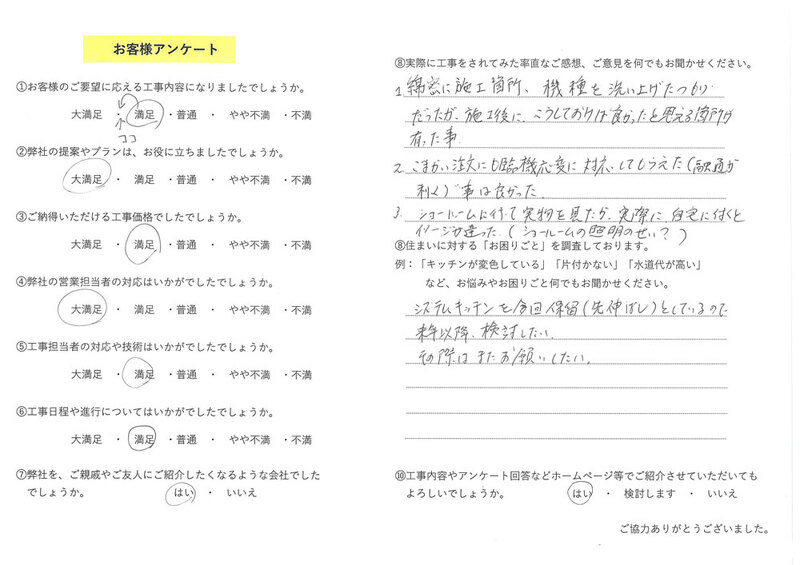 お客様アンケート
①お客様のご要望に応える工事内容になりましたでしょうか。
大満足 ・ 満足 ・普通 ・ やや不満 ・不満
ココ
②弊社の提案やプランは、お役に立ちましたでしょうか。
大満足 ・ 満足 ・普通 ・ やや不満 ・不満
③ご納得いただける工事価格でしたでしょうか。
大満足 ・ 満足 ・普通 ・ やや不満 ・不満
④弊社の営業担当者の対応はいかがでしたでしょうか。
大満足 ・ 満足 ・普通 ・ やや不満 ・不満
⑤工事担当者の対応や技術はいかがでしたでしょうか。
大満足 ・ 満足 ・普通 ・ やや不満 ・不満
⑥工事日程や進行についてはいかがでしたでしょうか。
大満足 ・ 満足 ・普通 ・ やや不満 ・不満
⑦弊社を、ご親戚やご友人にご紹介したくなるような会社でした
でしょうか。 はい ・ いいえ
⑧実際に工事をされてみた率直なご感想、ご意見を何でもお聞かせください。
1. 綿密に施工箇所、機種を洗い上げたつもり
だったが、施工後に、こうしておけば良かったと思える箇所が
有った事
2. こまかい注文にも臨機応変に対応してもらえた(融通が
利く)事は良かった。
3. ショールームに行って実物を見たが、実際に自宅に付くと
イメージが違った。(ショールームの照明のせい?)
⑧住まいに対する「お困りごと」を調査しております。
例：「キッチンが変色している」「片付かない」「水道代が高い」
など、お悩みやお困りごと何でもお聞かせください。
システムキッチンを今回保留(先伸ばし)としているので
来年以降、検討したい。
その際はまたお願いしたい。
⑩工事内容やアンケート回答などホームページ等でご紹介させていただいても
よろしいでしょうか。 はい ・ 検討します ・ いいえ
ご協力ありがとうございました。